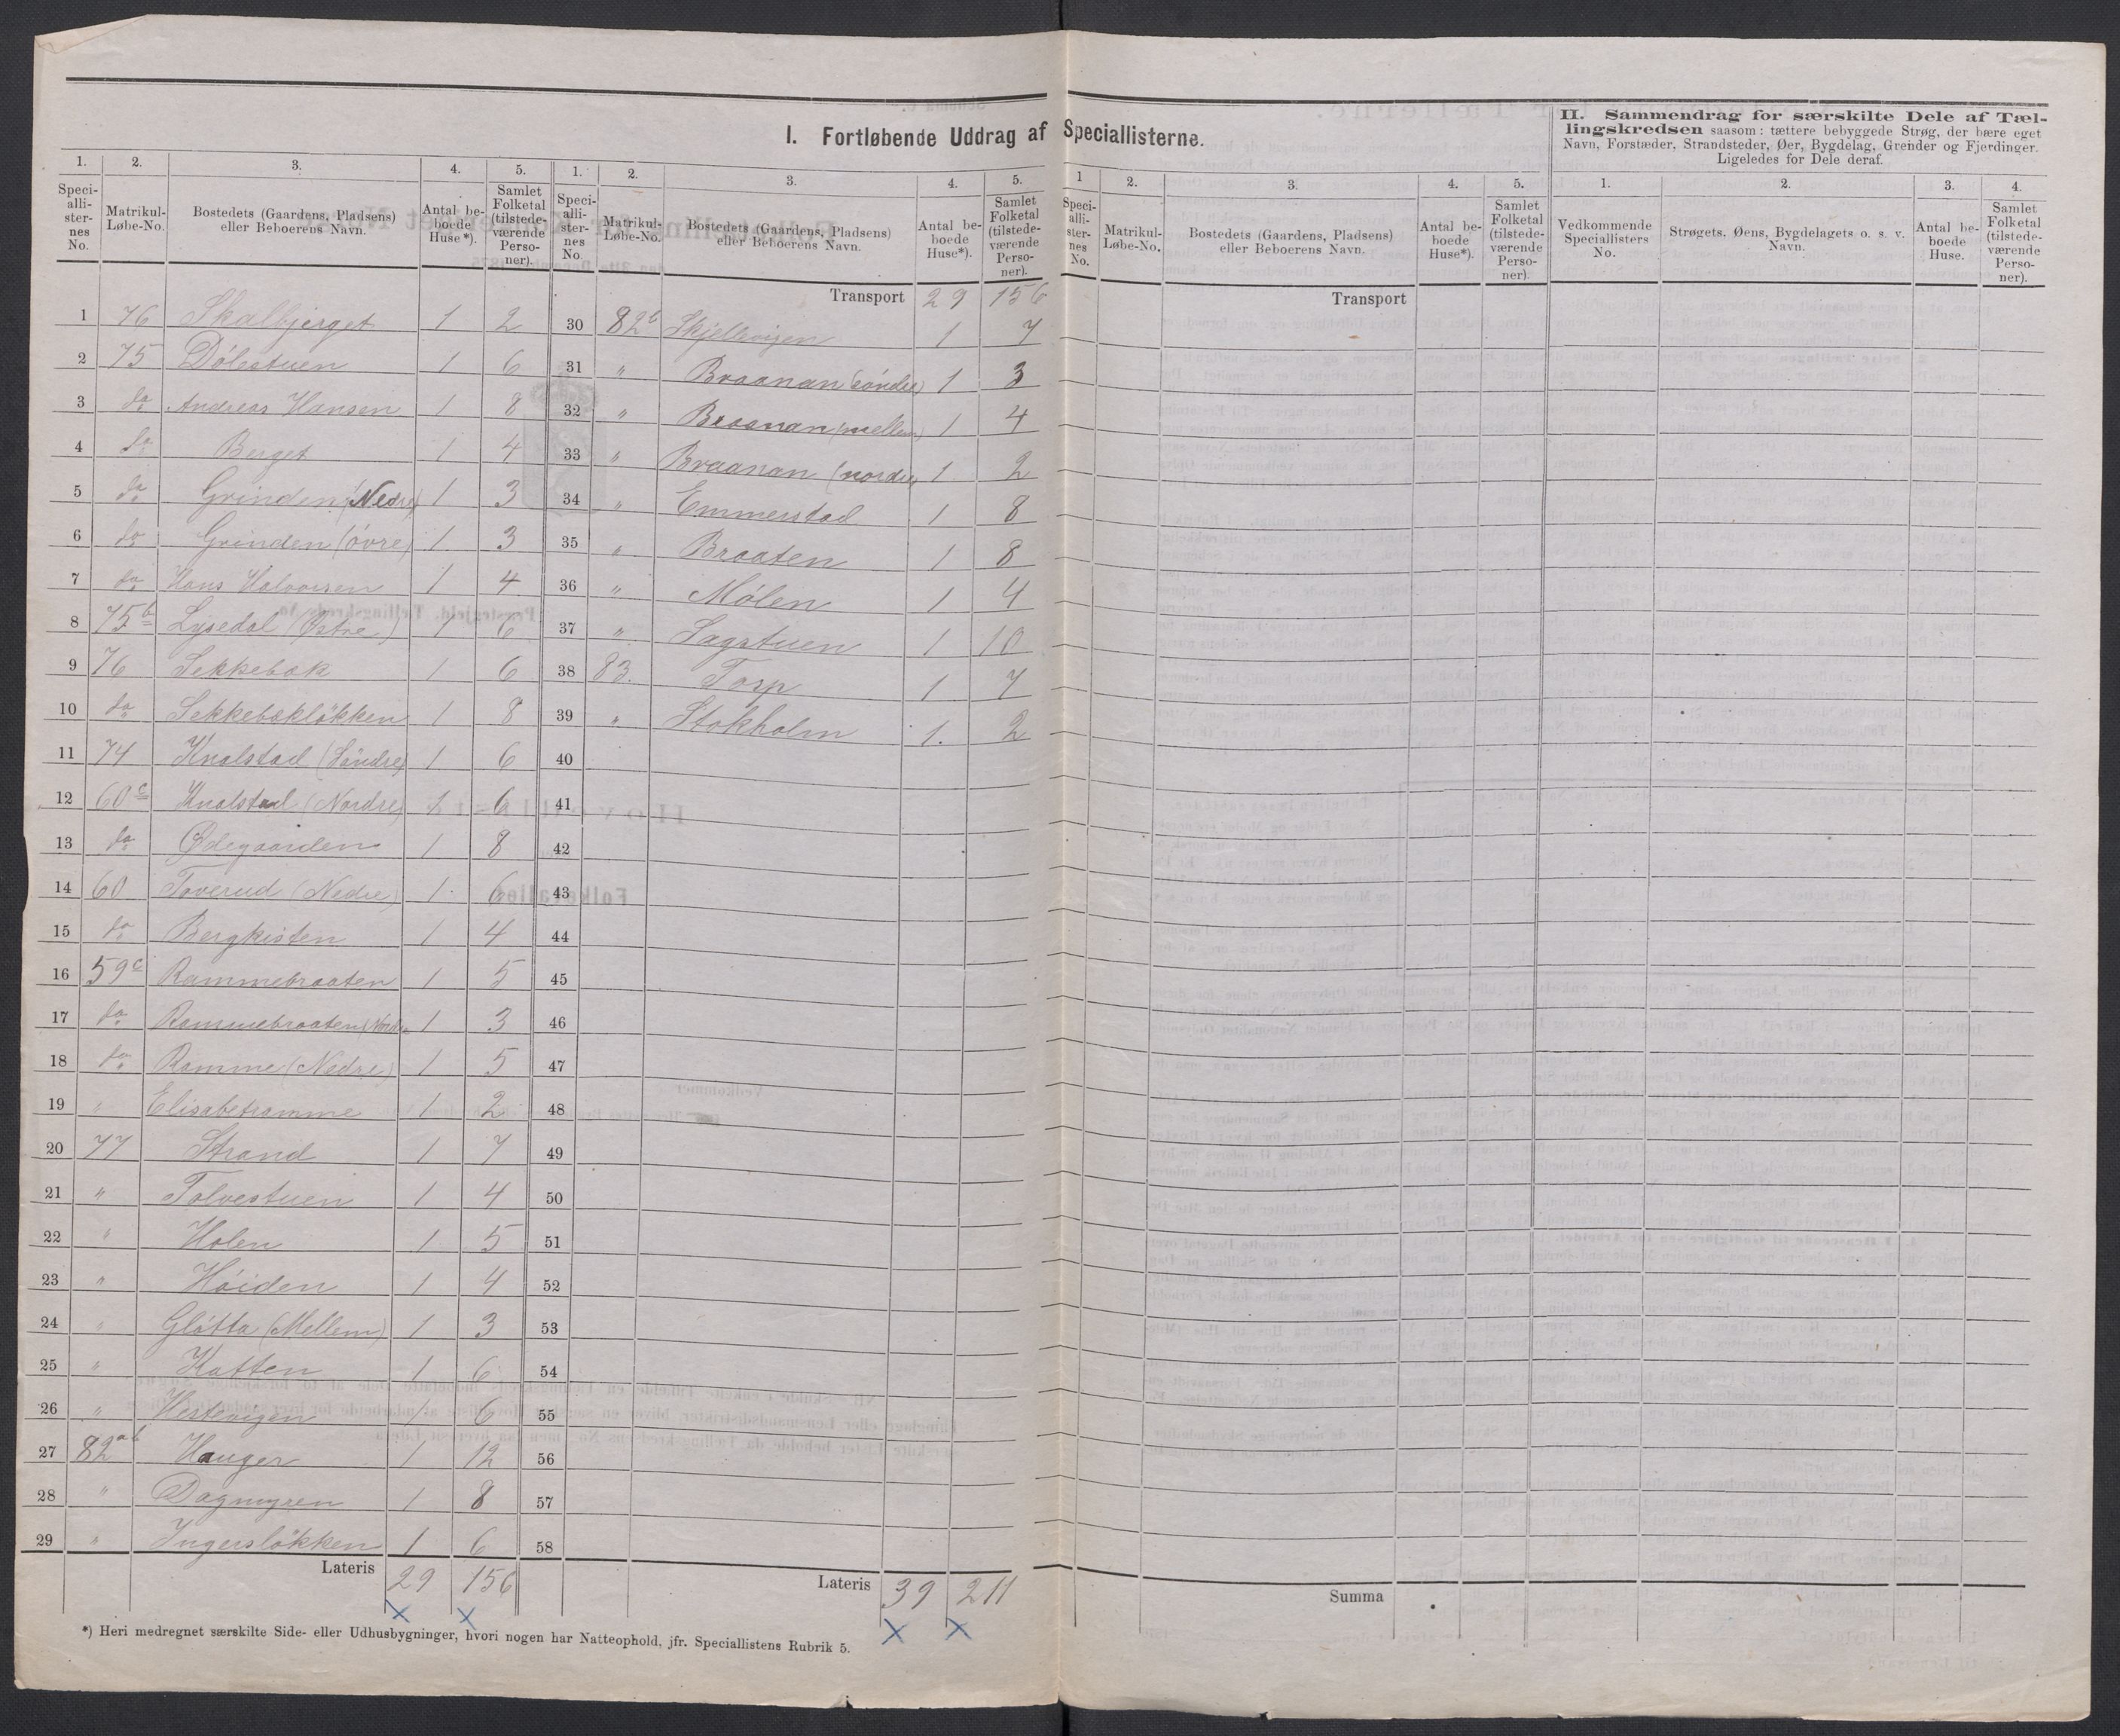 I. Fortløbende Uddrag af Speciallisterne.
1. 2. 3. 4. 5.
Speciallisternes No. Matrikul-Løbe-No. Bostedets (Gaardens, Pladsens) eller Beboerens Navn. Antal beboede Huse*). Samlet Folketal (tilstedeværende Personer).
1 76 Skalbjerget 1 2
2 75 Dölestuen 1 6
3 do Andreas Hansen 1 8
4 do Berget 1 4
5 do Grinden (Nedre) 1 3
6 do Grinden (övre) 1 3
7 do Hans Halvorsen 1 4
8 75b Lysedal (Østre) 1 6
9 76 Sekkebæk 1 6
10 do Sekkebæklökken 1 8
11 74 Knalstad (Söndre) 1 6
12 60c Knalstad (Nordre) 1 6
13 do Ødegaarden 1 8
14 60 Toverud (Nedre) 1 6
15 do Bergkisten 1 4
16 59c Rammebraaten 1 5
17 do Rammebraaten (Nordre 1 3
18 do Ramme (Nedre) 1 5
19 " Elisabetramme 1 2
20 77 Strand 1 7
21 " Tolvestuen 1 4
22 " Holen 1 5
23 " Höiden 1 4
24 " Glötta (Mellem) 1 3
25 " Katten 1 6
26 " Vestevigen 1 6
27 82ab Hauger 1 12
28 " Dagmyren 1 8
29 " Ingerslökken 1 6
Lateris 29 156
× ×
*) Heri medregnet særskilte Side- eller Udhusbygninger, hvori nogen har Natteophold, jfr. Speciallistens Rubrik 5.
1. 2. 3. 4. 5.
Speciallisternes No. Matrikul-Løbe-No. Bostedets (Gaardens, Pladsens) eller Beboerens Navn. Antal beboede Huse*). Samlet Folketal (tilstedeværende Personer).
Transport 29 156
30 82b Skjellevigen 1 7
31 " Braanan (söndre) 1 3
32 " Braanan (mellem) 1 4
33 " Braanan (nordre) 1 2
34 " Emmerstad 1 8
35 " Braaten 1 8
36 " Mölen 1 4
37 " Sagstuen 1 10
38 83. Torp 1 7
39 " Stokholm 1. 2
40
41
42
43
44
45
46
47
48
49
50
51
52
53
54
55
56
57
58
Lateris 39 211
× ×
1 2. 3. 4. 5.
Speciallisternes No. Matrikul-Løbe-No. Bostedets (Gaardens, Pladsens) eller Beboerens Navn. Antal beboede Huse*). Samlet Folketal (tilstedeværende Personer).
Transport
Summa
II. Sammendrag for særskilte Dele af Tællingskredsen saasom: tættere bebyggede Strøg, der bære eget
Navn, Forstæder, Strandsteder, Øer, Bygdelag, Grender og Fjerdinger.
Ligeledes for Dele deraf.
1. 2. 3. 4.
Vedkommende Speciallisters No. Strøgets, Øens, Bygdelagets o. s. v. Navn. Antal beboede Huse. Samlet Folketal (tilstedeværende Personer).